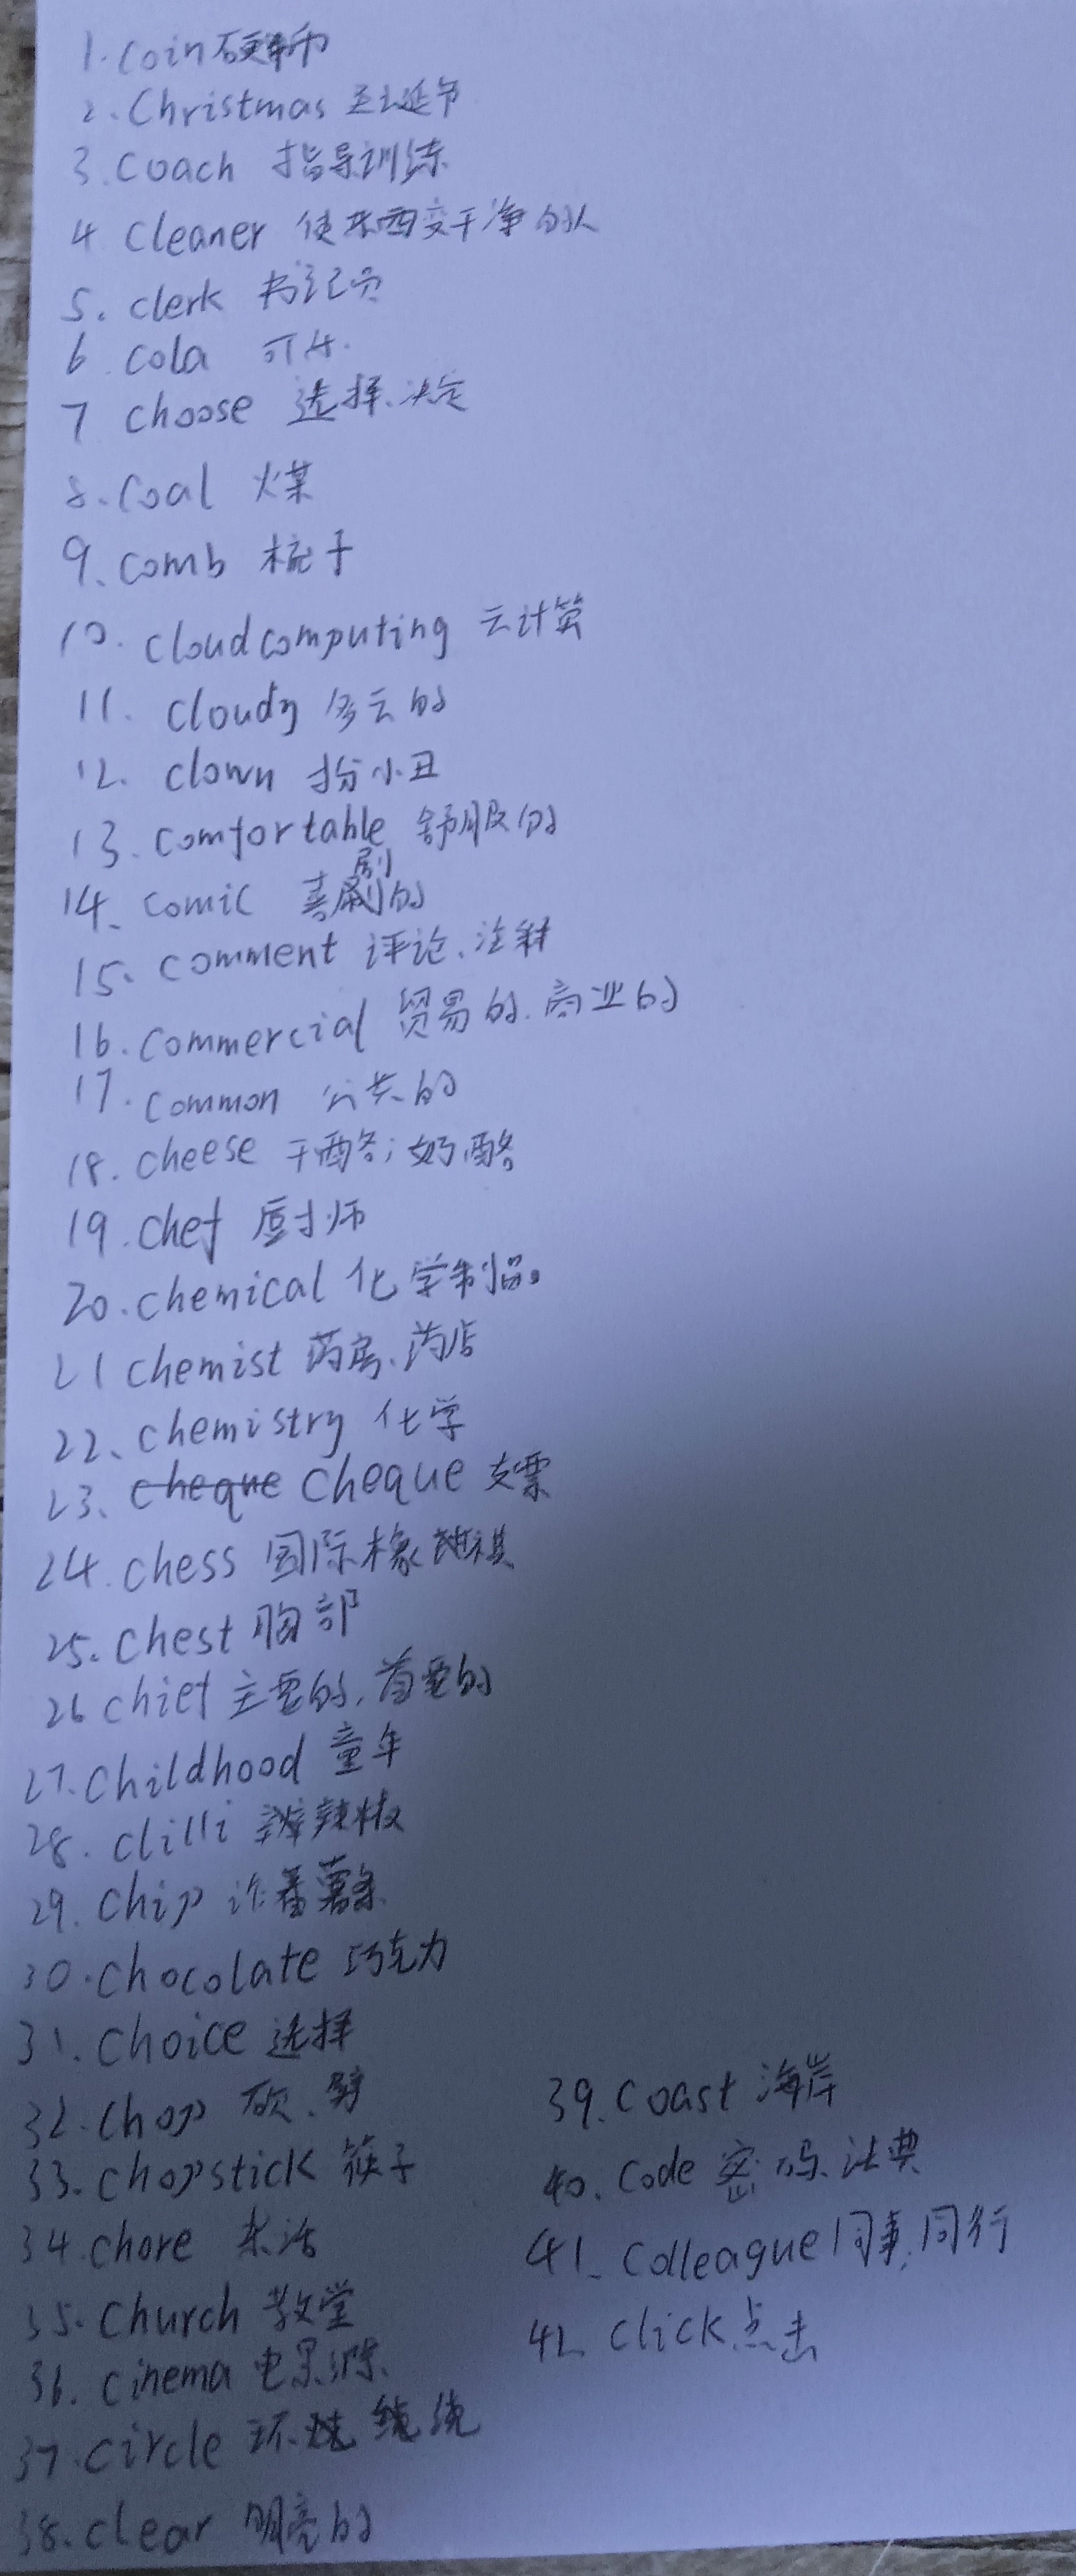 1. Coin 硬币
2. Christmas 圣诞节
3. Coach 指导训练
4 Cleaner 使东西变干净的人
5. clerk 书记员
6 Cola 可乐
7 Choose 选择、决定
8. Coal 煤
9. Comb 梳子
10. Cloudcomputing 云计算
11. Cloudy 多云的
12. Clown 扮小丑
13. Comfortable 舒服的
14. Comic 喜剧的
15. Comment 评论、注释
16. Commercial 贸易的、商业的
17. Common 公共的
18. Cheese 干酪; 奶酪
19. Chef 厨师
20. Chemical 化学制品。
21 Chemist 药房、药店
22、Chemistry 化学
23、Cheque Cheque 支票
24. Chess 国际橡棋
25. Chest 胸部
26 Chief 主要的, 首要的
27. Childhood 童年
28. Clilli 辣椒
29. Chip 炸番薯条
30. Chocolate 巧克力
31. Choice 选择
32. Chop 砍、劈
33. Chopstick 筷子
34. Chore 杂活
35. Church 教堂
36. Cinema 电影院
37. Circle 环绕
38. Clear 明亮的
39. Coast 海岸
40. Code 密码、法典
41. Colleague 同事, 同行
42. Click 点击